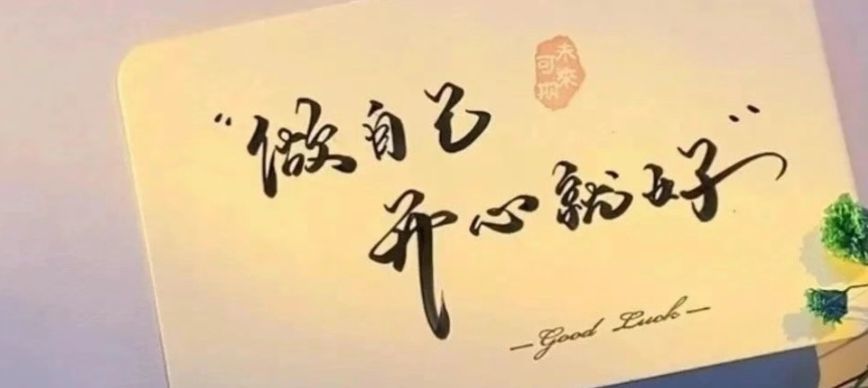 未来可期
“做自己
开心就好”
—Good Luck—